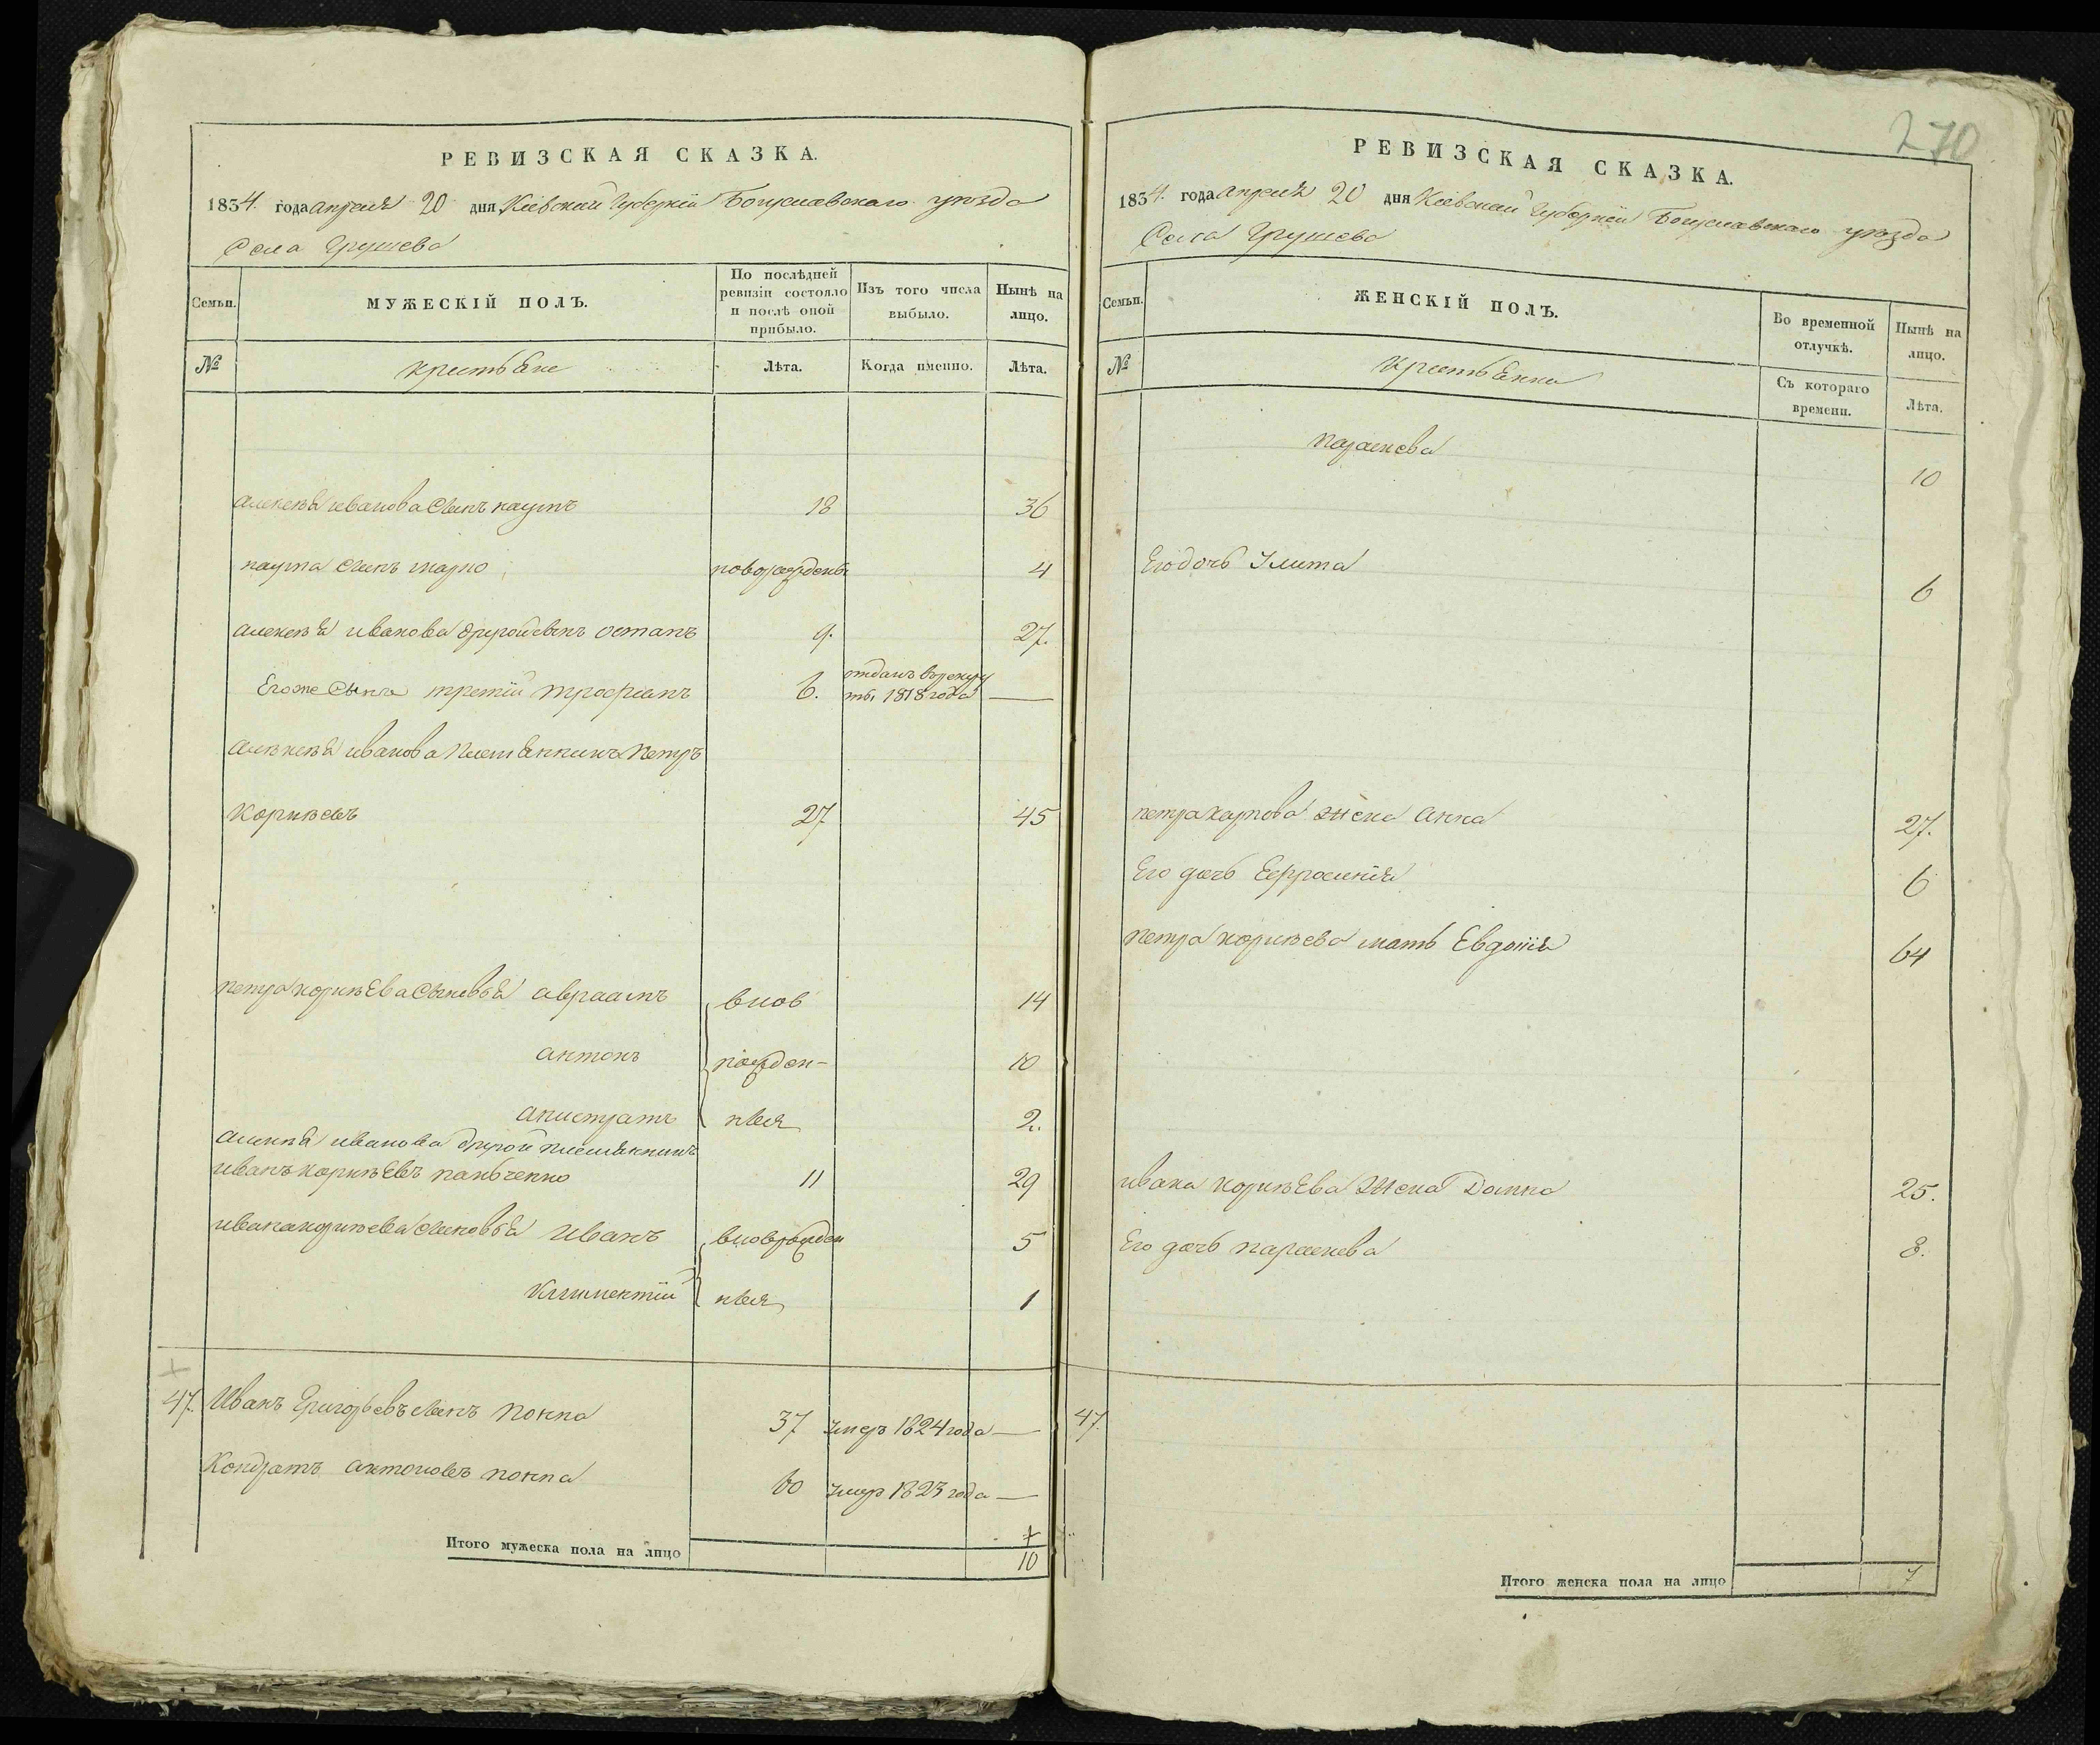 РЕВИЗСКАЯ СКАЗКА.
1834. года апреля 20 дня Кіевской Губерніи Богуславскаго уезда
Села Грушева
Семьи.
МУЖЕСКІЙ ПОЛЪ.
По послѣдней ревизіи состояло и послѣ оной прибыло.
Изъ того числа выбыло.
Нынѣ на лицо.
№
крестьяне
Лѣта.
Когда именно.
Лѣта.
алексея иванова сынъ наумъ 18 36
наума сынъ марко новорожденъ 4
алексея иванова другой сынъ остапъ 9. 27.
Егоже сынъ третій трофимъ 6. отданъ врекру
ты 1818 года —
алексея иванова племянникъ петръ
корнѣевъ 27 45
петра корнѣева сыновья авраамъ внов 14
антонъ рожден- 10
анистратъ ныя 2.
алексея иванова другой племянникъ
иванъ корнѣевъ панченко 11 29
ивана корнѣева сыновья иванъ вновърожден 5
климентій ныя 1
47. Иванъ Григорьевъ сынъ попка 37 умеръ 1824 года —
Кондратъ антоновъ попка 60 умеръ 1823 года —
Итого мужеска пола на лицо 10
270
РЕВИЗСКАЯ СКАЗКА.
1834. года апреля 20 дня Кіевской Губерніи Богуславскаго уезда
Села Грушева
Семьи.
ЖЕНСКІЙ ПОЛЪ.
Во временной отлучкѣ.
Нынѣ на лицо.
№
крестьянка
Съ котораго времени.
Лѣта.
параскева 10
Его дочь Улита 6
петра карпова жена анна 27.
Его дочь Ефросинія 6
петра корнѣева мать Евдокія 64
ивана корнѣева жена Домна 25.
Его дочь параскева 8.
47.
Итого женска пола на лицо 7